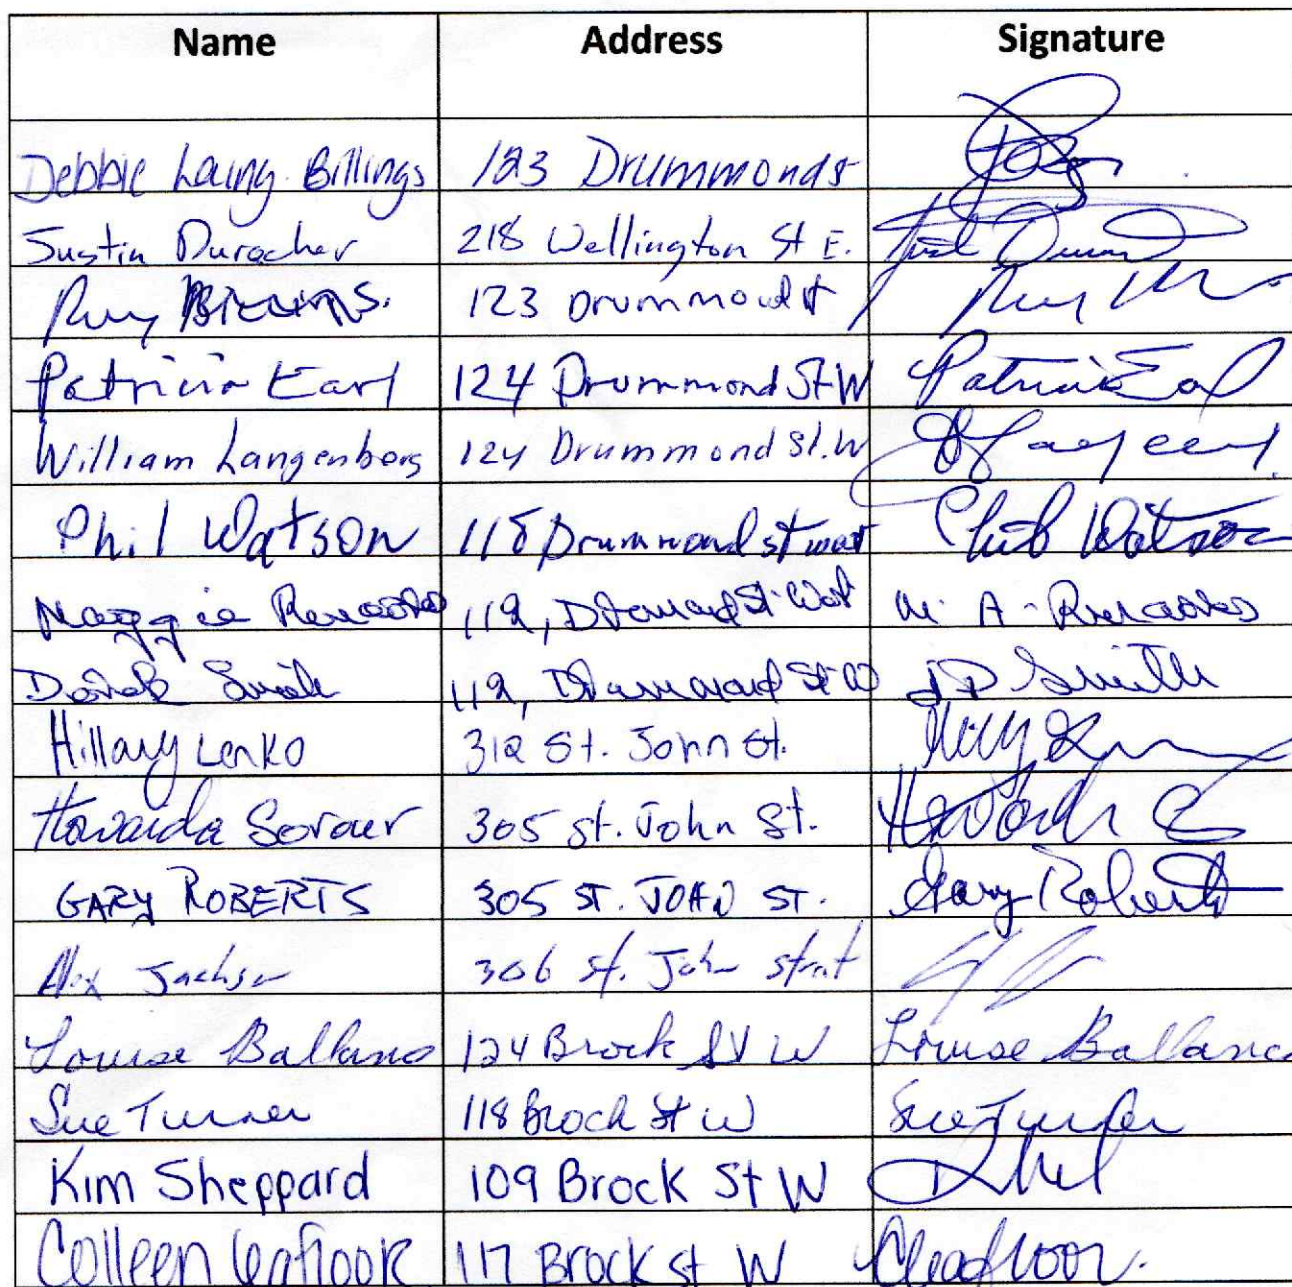 Name Address Signature
Debbie Laing-Billings 123 Drummond St
Justin Durocher 218 Wellington St E.
123 Drummond St
Patricia Earl 124 Drummond St W Patricia Earl
William Langenberg 124 Drummond St. W
Phil Watson 118 Drummond st west Phil Watson
Maggie 112, Drummond St West M. A.
Derek Smith 112, Drummond St W JD Smith
Hillary Lenko 312 St. John St.
Howaida Sorour 305 St. John St.
GARY ROBERTS 305 ST. JOHN ST. Gary Roberts
Alex Jackson 306 St. John street
Louise Ballance 124 Brock St W Louise Ballance
Sue Turner 118 Brock St W Sue Turner
Kim Sheppard 109 Brock St W
Colleen 117 Brock st W